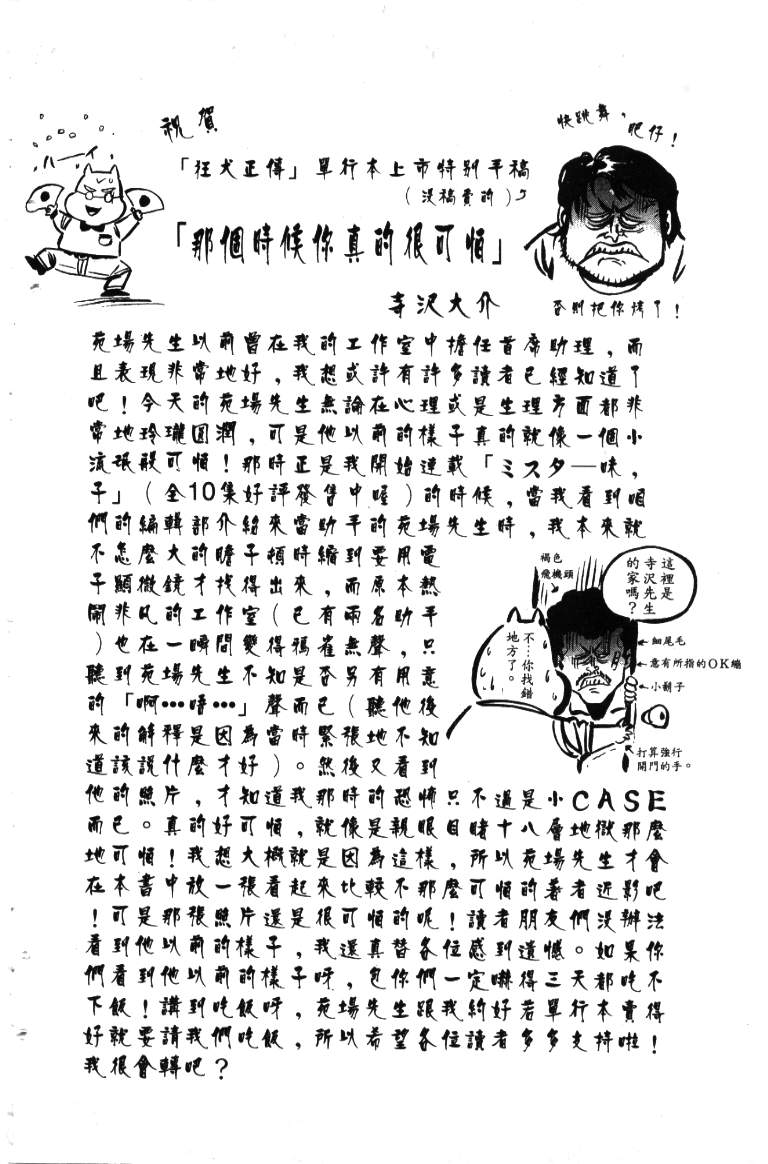 祝賀
ハーイ
快跳舞，
肥仔！
「狂犬正傳」單行本上市特別手稿
（沒稿費的）
「那個時候你真的很可怕」
否則把你烤了！
寺沢大介
苑場先生以前曾在我的工作室中擔任首席助理，而
且表現非常地好，我想或許有許多讀者已經知道了
吧！今天的苑場先生無論在心理或是生理方面都非
常地玲瓏圓潤，可是他以前的樣子真的就像一個小
流氓般可怕！那時正是我開始連載「ミスター味，
子」（全10集好評發售中喔）的時候，當我看到咱
們的編輯部介紹來當助手的苑場先生時，我本來就
不怎麼大的瞻子頓時縮到要用電
子顯微鏡才找得出來，而原本熱
鬧非凡的工作室（已有兩名助手
）也在一瞬間變得鴉雀無聲，只
聽到苑場先生不知是否另有用意
的「啊…唔…」聲而已（聽他後
來的解釋是因為當時緊張地不知
道該說什麼才好）。然後又看到
褐色
飛機頭
這裡是
寺沢先生
的家嗎？
不…你找錯
地方了。
細尾毛
意有所指的OK繃
小鬍子
打算強行
開門的手。
他的照片，才知道我那時的恐怖只不過是小CASE
而已。真的好可怕，就像是親眼目睹十八層地獄那麼
地可怕！我想大概就是因為這樣，所以苑場先生才會
在本書中放一張看起來比較不那麼可怕的著者近影吧
！可是那張照片還是很可怕的呢！讀者朋友們沒辦法
看到他以前的樣子，我還真替各位感到遺憾。如果你
們看到他以前的樣子呀，包你們一定嚇得三天都吃不
下飯！講到吃飯呀，苑場先生跟我約好若單行本賣得
好就要請我們吃飯，所以希望各位讀者多多支持啦！
我很會轉吧？